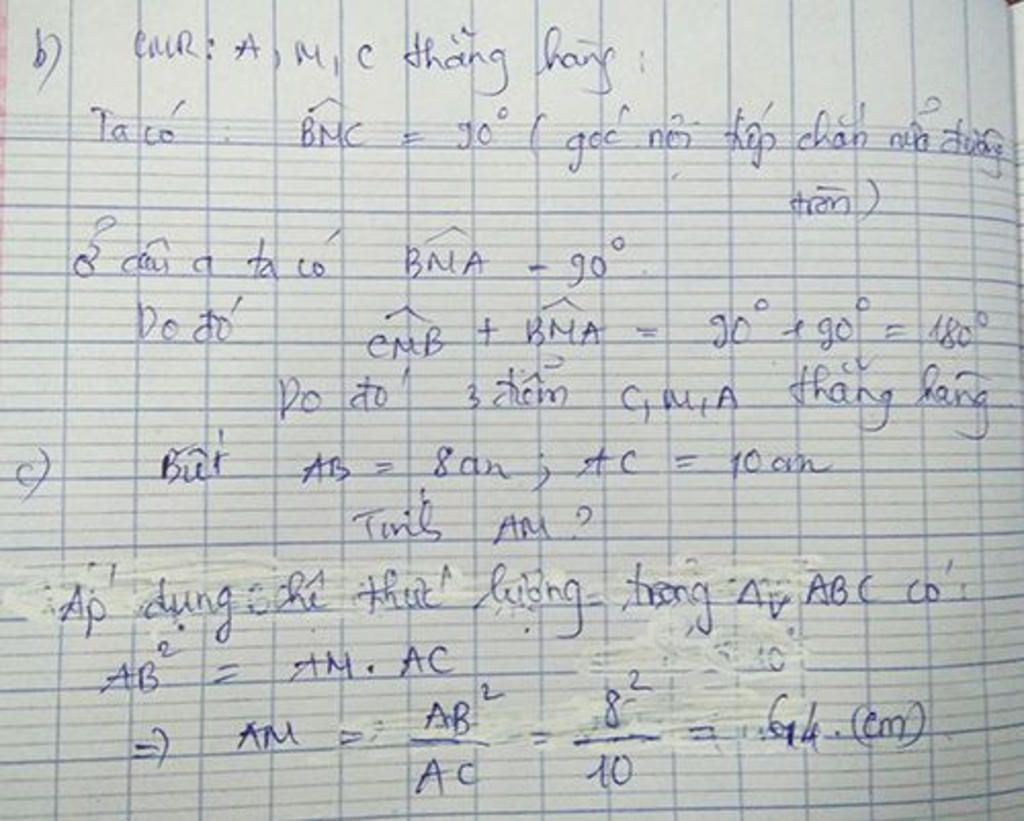 b) CMR: A, M, C thẳng hàng:
Ta có: BMC = 90° (góc nội tiếp chắn nửa đường
tròn)
Ở câu a ta có BMA = 90°
Do đó CMB + BMA = 90° + 90° = 180°
Do đó 3 điểm C, M, A thẳng hàng
c) Biết AB = 8cm; AC = 10cm
Tính AM?
Áp dụng: hệ thức lượng trong Δv ABC có:
AB² = AM. AC
=> AM = AB²/AC = 8²/10 = 6,4 (cm)